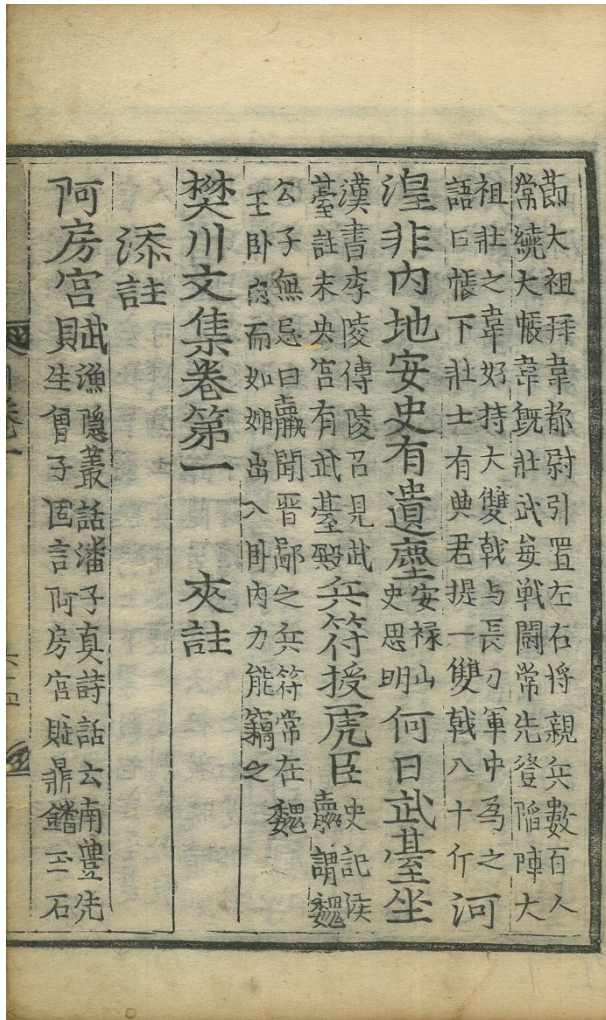 節大祖拜韋都尉引置左右将親兵數百人
常繞大帳韋既壮武每戦闘常先登陷陣大
祖壮之韋好持大雙戟与長刀軍中為之
語曰帳下壮士有典君提一雙戟八十斤河
湟非内地安史有遺塵安禄山史思明何日武臺坐
漢書李陵傳陵召見武臺註未央宮有武臺殿兵符授虎臣史記侯嬴謂魏
公子無忌曰嬴聞晋鄙之兵符常在魏
王卧内而如姫出入卧内力能竊之
樊川文集卷第一 夾註
添註
阿房宮賦漁隱叢話潘子真詩話云南豊先
生曾子固言阿房宮賦鼎鐺玉石